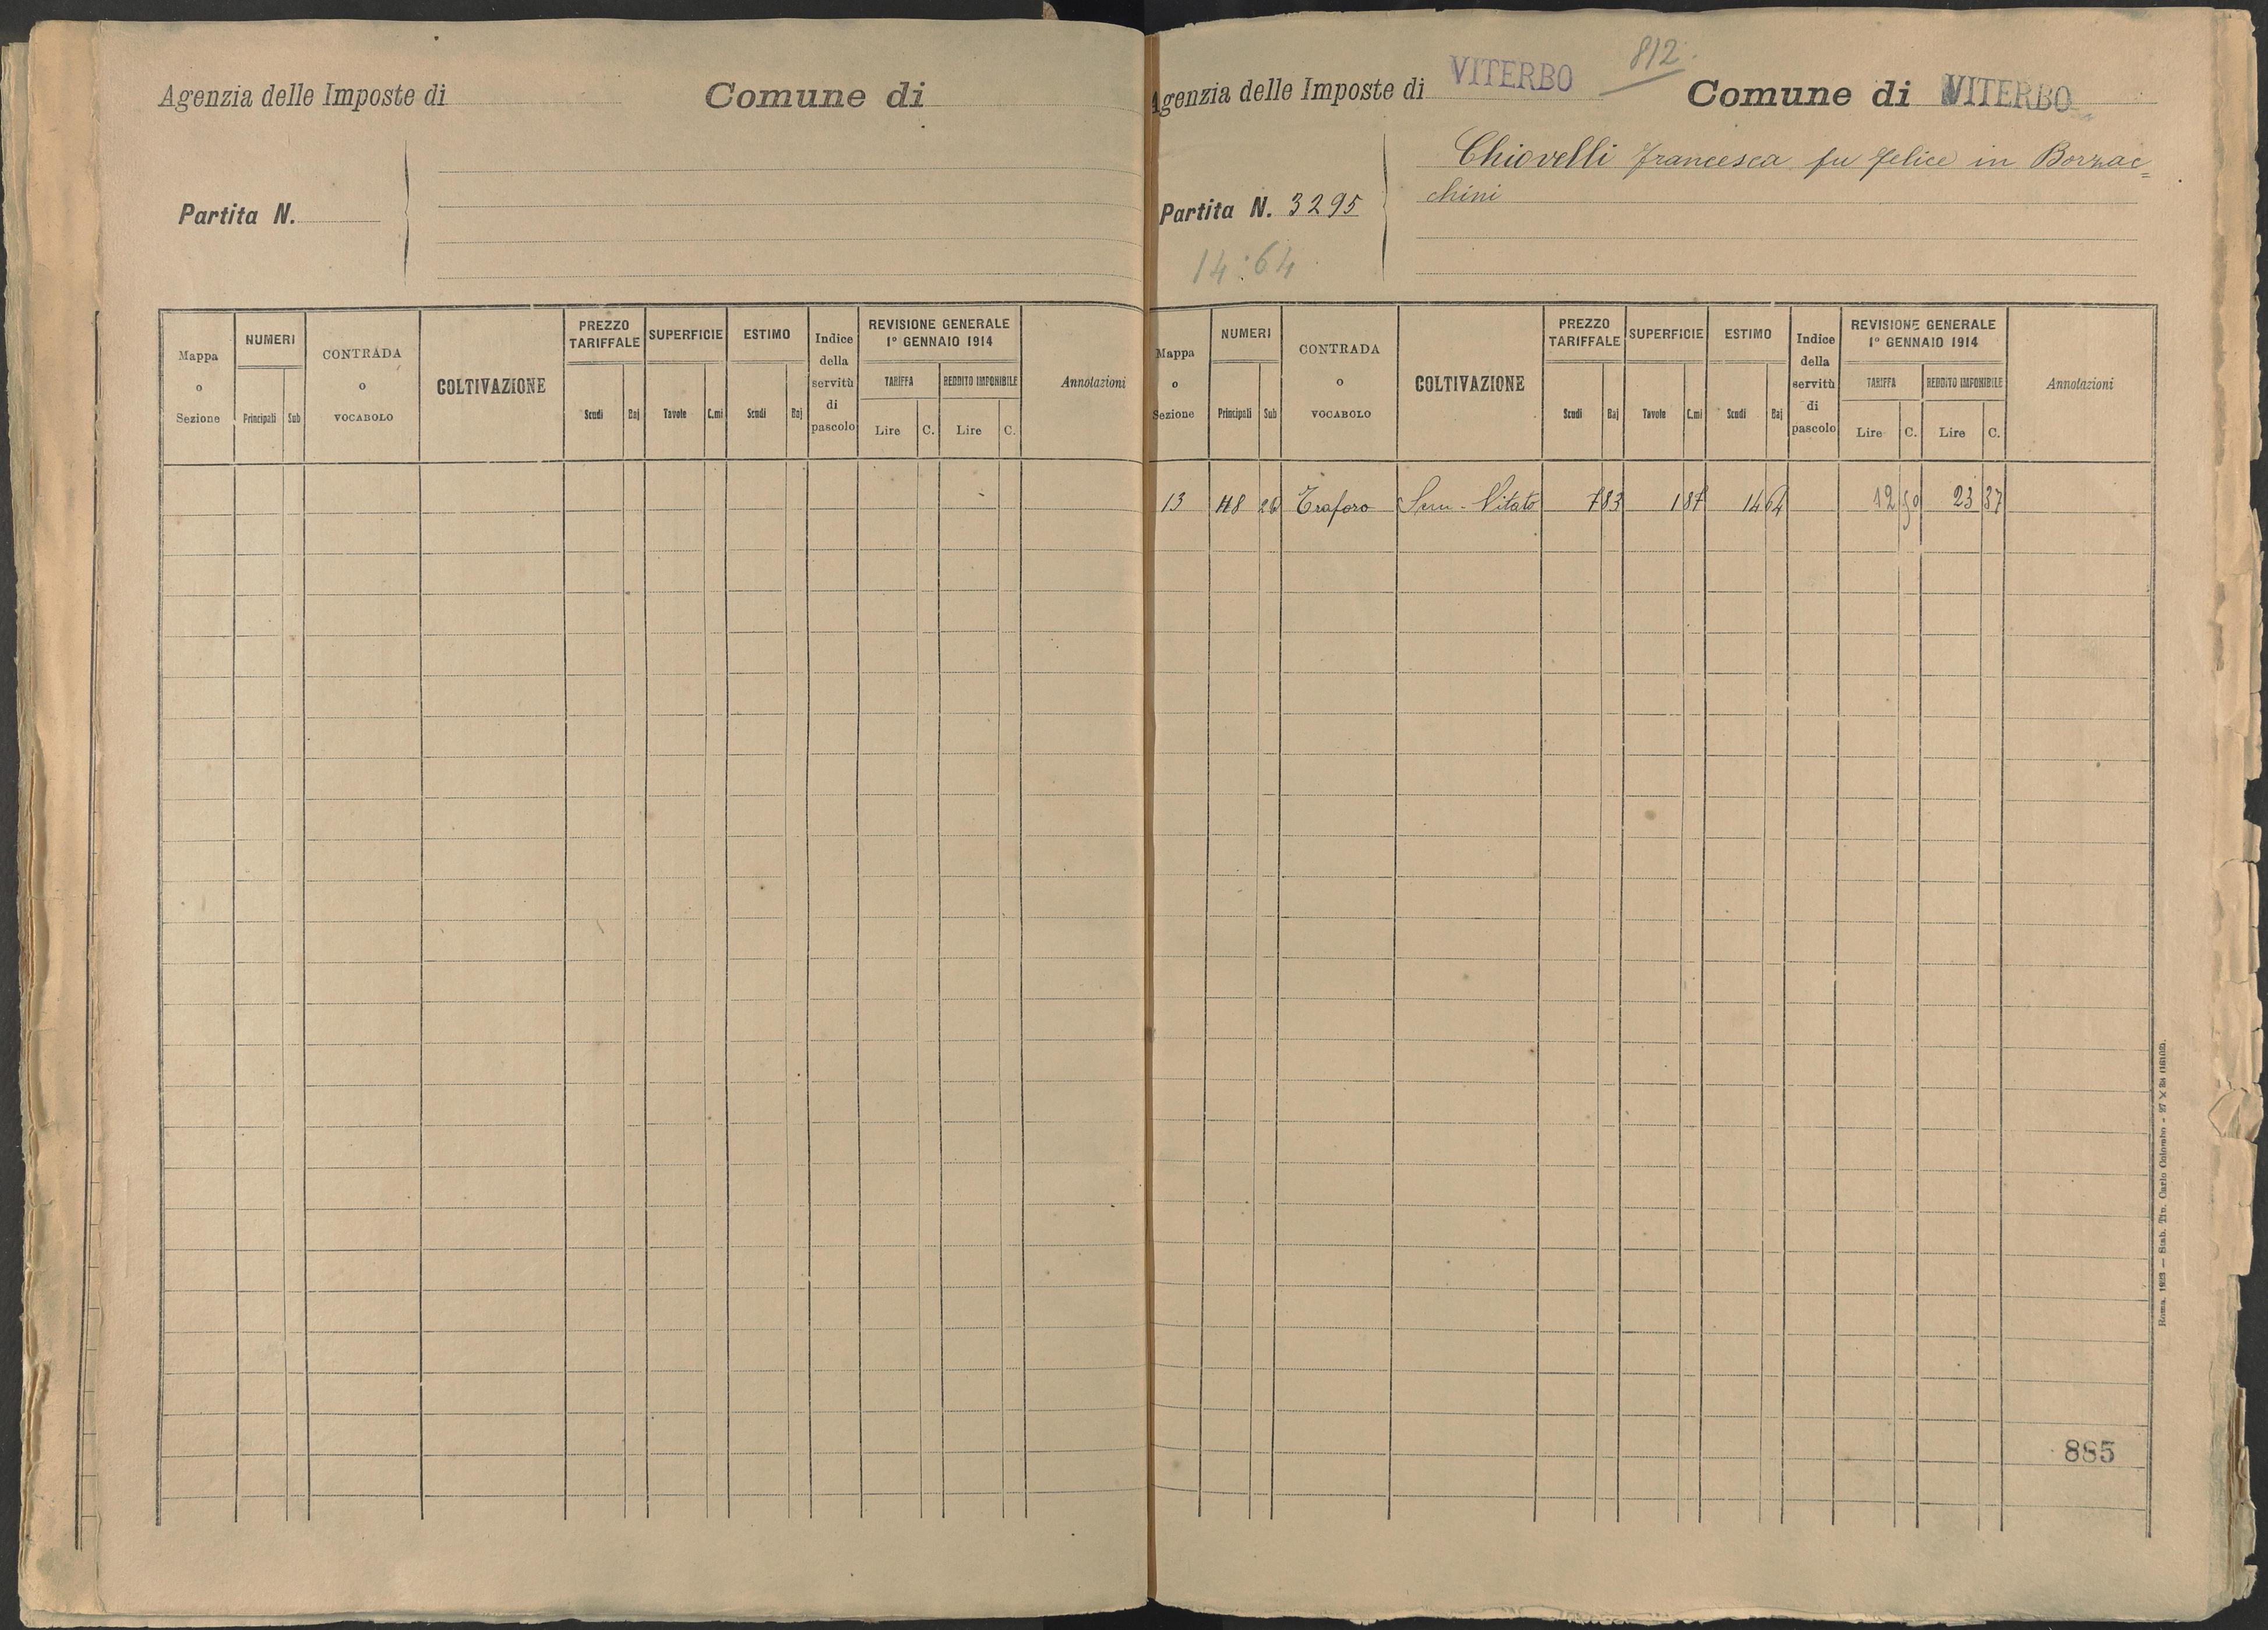 Agenzia delle Imposte di
Comune di
Partita N.
Mappa o Sezione
NUMERI
Principali Sub
CONTRADA o VOCABOLO
COLTIVAZIONE
PREZZO TARIFFALE
Scudi Baj
SUPERFICIE
Tavole C.mi
ESTIMO
Scudi Baj
Indice della servitù di pascolo
REVISIONE GENERALE
1° GENNAIO 1914
TARIFFA REDDITO IMPONIBILE
Lire C. Lire C.
Annotazioni
Agenzia delle Imposte di VITERBO
812
Comune di VITERBO
Chiovelli Francesca fu Felice in Borzac=
chini
Partita N. 3295
14:64
Mappa o Sezione
NUMERI
Principali Sub
CONTRADA o VOCABOLO
COLTIVAZIONE
PREZZO TARIFFALE
Scudi Baj
SUPERFICIE
Tavole C.mi
ESTIMO
Scudi Baj
Indice della servitù di pascolo
REVISIONE GENERALE
1° GENNAIO 1914
TARIFFA REDDITO IMPONIBILE
Lire C. Lire C.
Annotazioni
13 Traforo Sem. Vitato 7 83 1 87 14 64 12 50 23 37
885
Roma, 1923 — Stab. Tip. Carlo Colombo